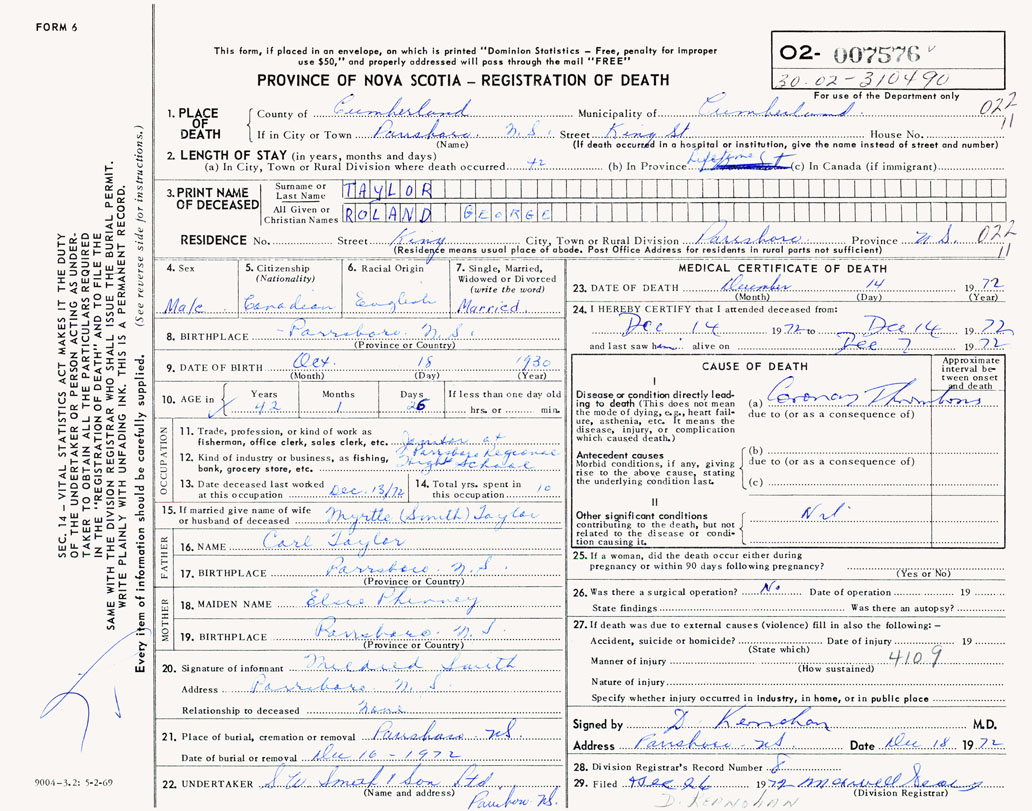 FORM 6
This form, if placed in an envelope, on which is printed "Dominion Statistics – Free, penalty for improper
use $50," and properly addressed will pass through the mail "FREE"
PROVINCE OF NOVA SCOTIA – REGISTRATION OF DEATH
02- 007576
30.02-310490
For use of the Department only
022
11
1. PLACE OF DEATH
County of Cumberland Municipality of Cumberland
If in City or Town Parrsboro. N.S. Street King St House No.
(Name) (If death occurred in a hospital or institution, give the name instead of street and number)
2. LENGTH OF STAY (in years, months and days)
(a) In City, Town or Rural Division where death occurred 42 (b) In Province Lifetime (c) In Canada (if immigrant)
3. PRINT NAME OF DECEASED
Surname or Last Name TAYLOR
All Given or Christian Names ROLAND GEORGE
RESIDENCE No. Street King City, Town or Rural Division Parrsboro Province N.S.
022
11
(Residence means usual place of abode. Post Office Address for residents in rural parts not sufficient)
4. Sex Male
5. Citizenship (Nationality) Canadian
6. Racial Origin English
7. Single, Married, Widowed or Divorced (write the word) Married
8. BIRTHPLACE Parrsboro. N.S.
(Province or Country)
9. DATE OF BIRTH Oct. 18 1930
(Month) (Day) (Year)
10. AGE in Years 42 Months 1 Days 26 If less than one day old hrs. or min.
OCCUPATION
11. Trade, profession, or kind of work as fisherman, office clerk, sales clerk, etc. Janitor at
12. Kind of industry or business, as fishing, bank, grocery store, etc. Parrsboro Regional
13. Date deceased last worked at this occupation Dec. 13/72
14. Total yrs. spent in this occupation 10
15. If married give name of wife or husband of deceased Myrtle (Smith) Taylor
FATHER
16. NAME Carl Taylor
17. BIRTHPLACE Parrsboro. N.S.
(Province or Country)
MOTHER
18. MAIDEN NAME Elsie Phinney
19. BIRTHPLACE Parrsboro. N.S.
(Province or Country)
20. Signature of informant Mildred Smith
Address Parrsboro. N.S.
Relationship to deceased None
21. Place of burial, cremation or removal Parrsboro NS.
Date of burial or removal Dec 16 – 1972
22. UNDERTAKER Smith & Son Ltd.
(Name and address) Parrsboro NS.
MEDICAL CERTIFICATE OF DEATH
23. DATE OF DEATH December 14 1972
(Month) (Day) (Year)
24. I HEREBY CERTIFY that I attended deceased from:
Dec 14 1972 to Dec 14 1972
and last saw him alive on Dec 7 1972
CAUSE OF DEATH
Approximate interval between onset and death
I
Disease or condition directly leading to death (This does not mean the mode of dying, e.g., heart failure, asthenia, etc. It means the disease, injury, or complication which caused death.)
(a) Coronary Thrombosis
due to (or as a consequence of)
Antecedent causes
Morbid conditions, if any, giving rise to the above cause, stating the underlying condition last.
(b)
due to (or as a consequence of)
(c)
II
Other significant conditions contributing to the death, but not related to the disease or condition causing it.
Nil
25. If a woman, did the death occur either during
pregnancy or within 90 days following pregnancy?
(Yes or No)
26. Was there a surgical operation? No Date of operation 19
State findings Was there an autopsy?
27. If death was due to external causes (violence) fill in also the following: –
Accident, suicide or homicide? Date of injury 19
(State which)
4109
Manner of injury
(How sustained)
Nature of injury
Specify whether injury occurred in industry, in home, or in public place
Signed by D. Kernohan M.D.
Address Parrsboro NS. Date Dec 18 1972
28. Division Registrar's Record Number 8
29. Filed Dec 26 1972 Maxwell
(Division Registrar)
D. KERNOHAN
SEC. 14 – VITAL STATISTICS ACT MAKES IT THE DUTY
OF THE UNDERTAKER OR PERSON ACTING AS UNDER-
TAKER TO OBTAIN ALL THE PARTICULARS REQUIRED
IN THE "REGISTRATION OF DEATH" AND TO FILE THE
SAME WITH THE DIVISION REGISTRAR WHO SHALL ISSUE THE BURIAL PERMIT.
WRITE PLAINLY WITH UNFADING INK. THIS IS A PERMANENT RECORD.
Every item of information should be carefully supplied. (See reverse side for instructions.)
9004-3.2: 5-2-69